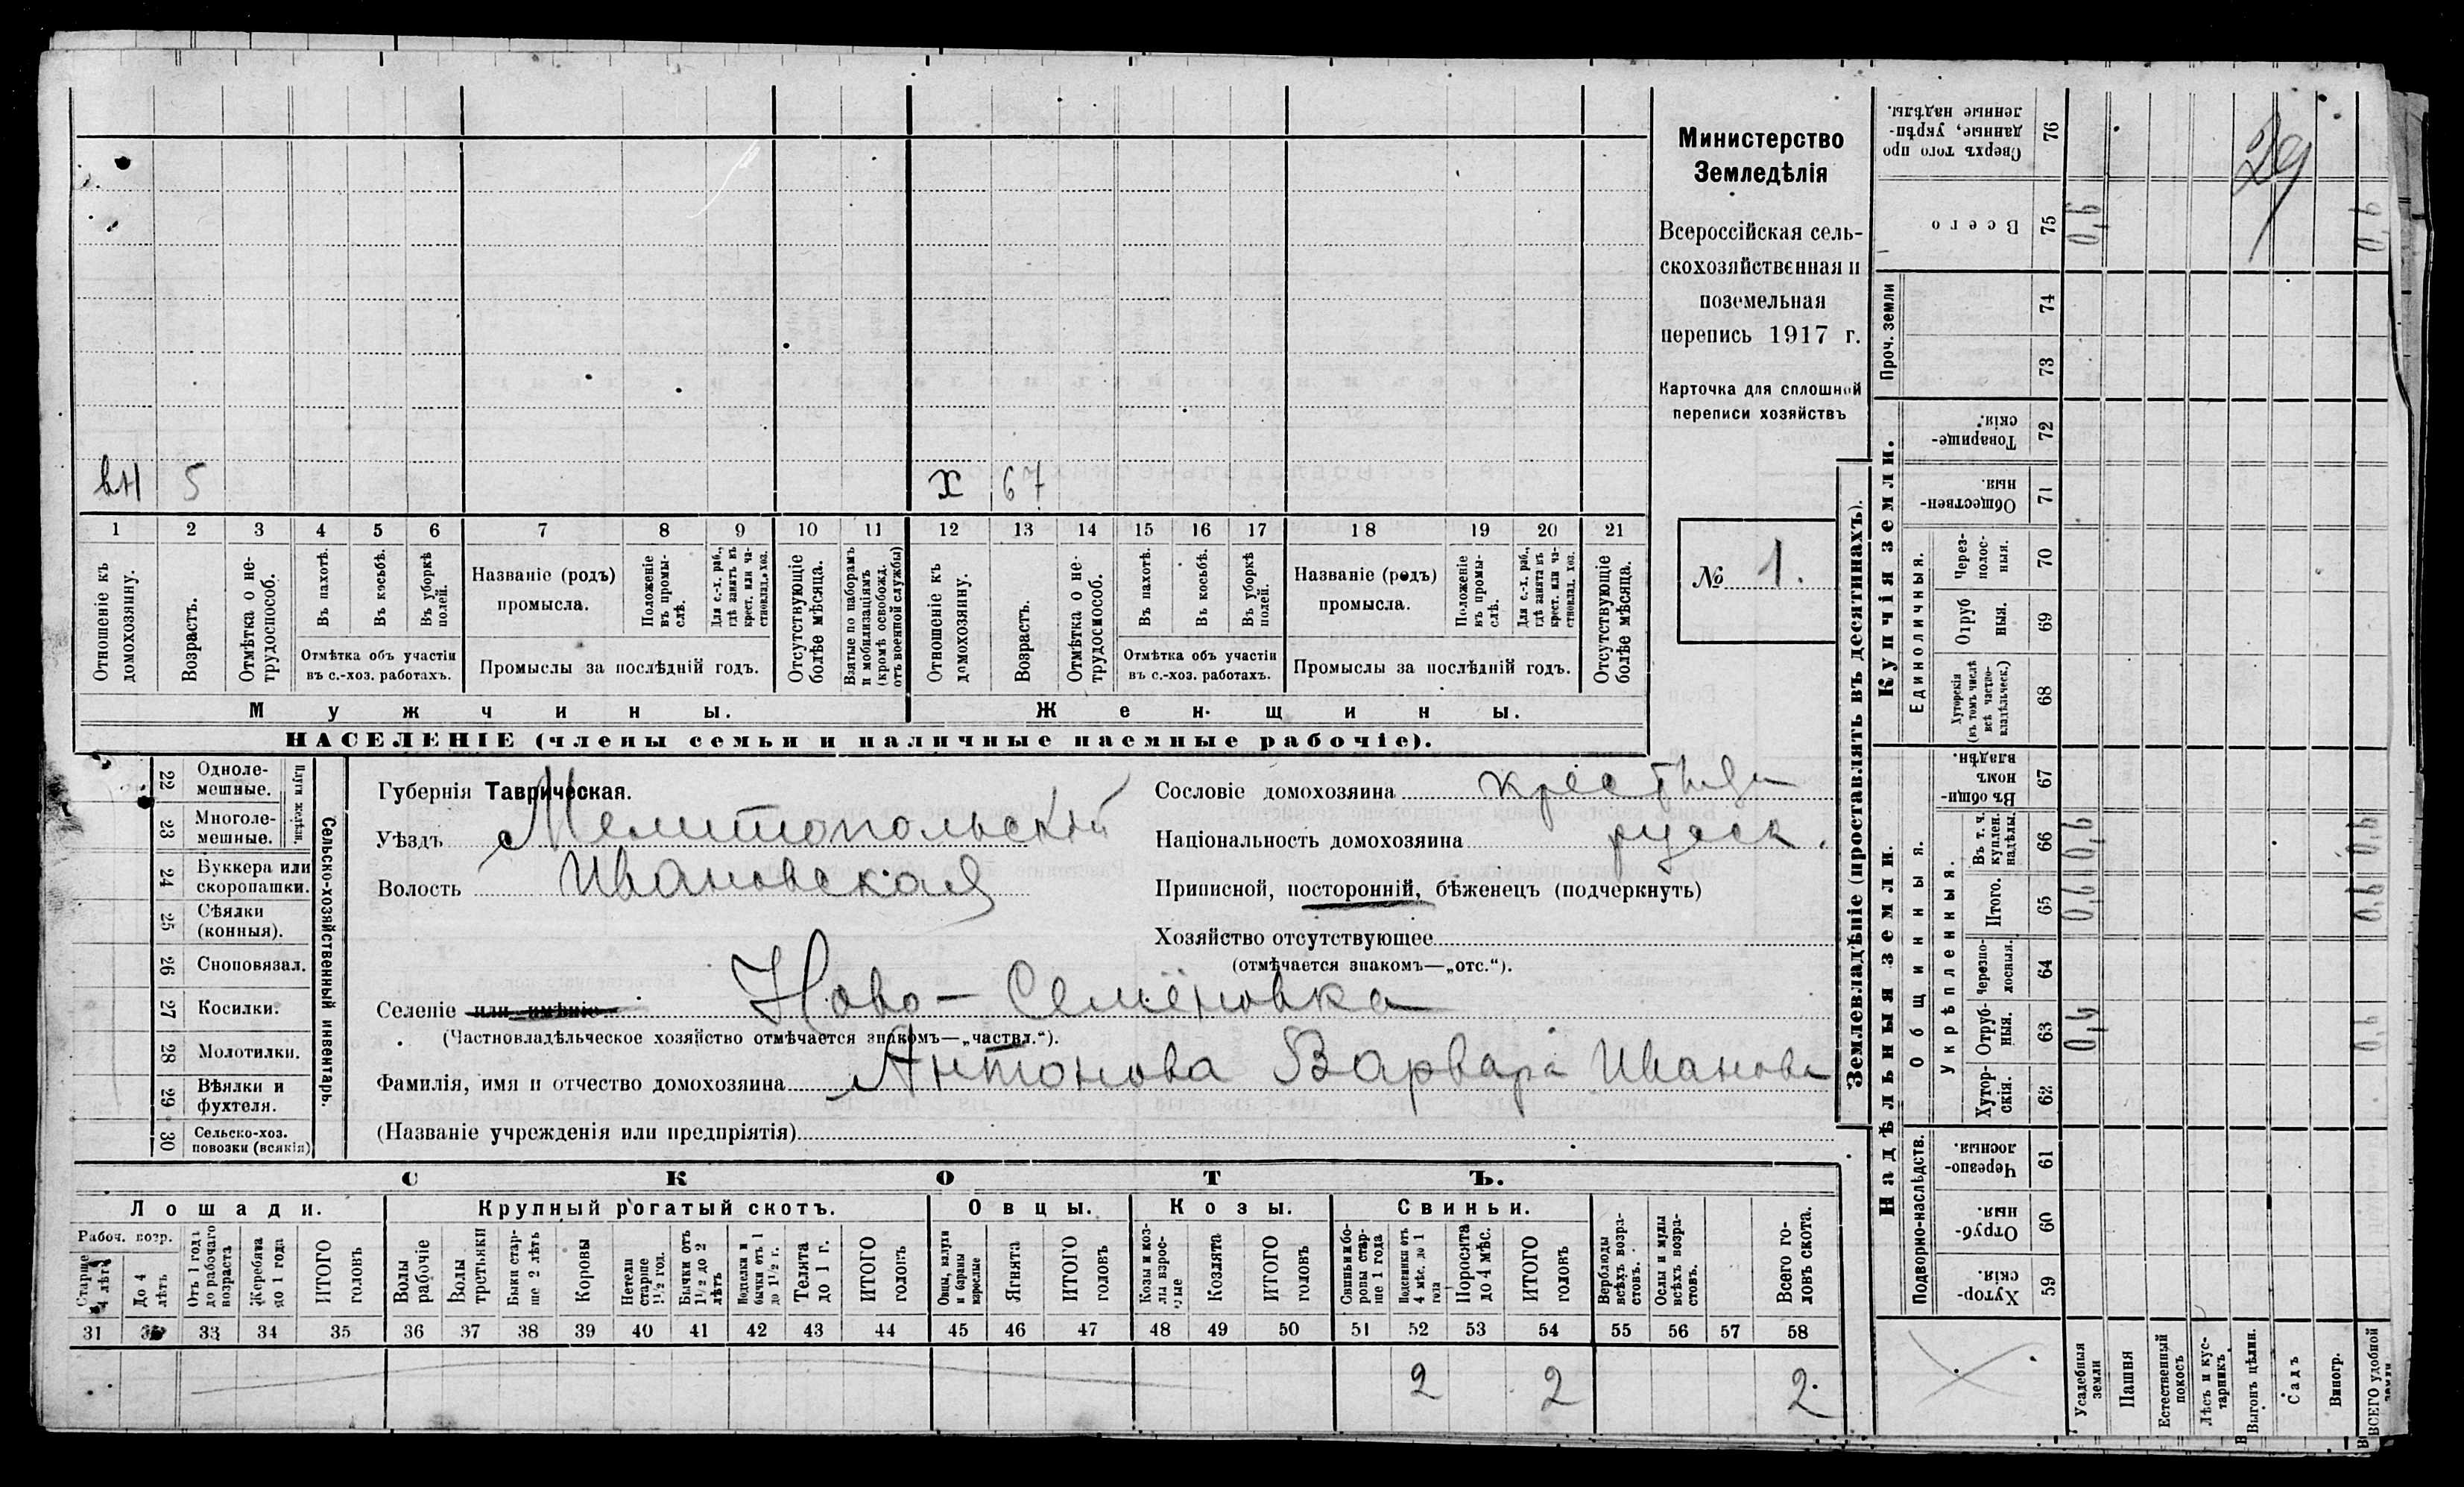 Министерство
Земледѣлія
Всероссійская сель-
скохозяйственная и
поземельная
перепись 1917 г.
Карточка для сплошной
переписи хозяйствъ
№ 1.
вн 5 х 67
1 2 3 4 5 6 7 8 9 10 11 12 13 14 15 16 17 18 19 20 21
Отношеніе къ домохозяину.
Возрастъ.
Отмѣтка о не-трудоспособ.
Въ пахотѣ.
Въ косьбѣ.
Въ уборкѣ полей.
Отмѣтка объ участіи
въ с.-хоз. работахъ.
Названіе (родъ)
промысла.
Положеніе въ промы-слѣ.
Для с.-х. раб., гдѣ занятъ въ крест. или ча-стновлад. хоз.
Промыслы за послѣдній годъ.
Отсутствующіе болѣе мѣсяца.
Взятые по наборамъ и мобилизаціямъ (кромѣ освобожд. отъ военной службы)
Отношеніе къ домохозяину.
Возрастъ.
Отмѣтка о не-трудоспособ.
Въ пахотѣ.
Въ косьбѣ.
Въ уборкѣ полей.
Отмѣтка объ участіи
въ с.-хоз. работахъ.
Названіе (родъ)
промысла.
Положеніе въ промы-слѣ.
Для с.-х. раб., гдѣ занята въ крест. или ча-стновлад. хоз.
Промыслы за послѣдній годъ.
Отсутствующіе болѣе мѣсяца.
Мужчины. Женщины.
НАСЕЛЕНІЕ (члены семьи и наличные наемные рабочіе).
22 Одноле-мешные.
23 Многоле-мешные.
Плуги желѣзн.
24 Буккера или скоропашки.
25 Сѣялки (конныя).
26 Сноповязал.
27 Косилки.
28 Молотилки.
29 Вѣялки и фухтеля.
30 Сельско-хоз. повозки (всякія)
Сельско-хозяйственный инвентарь.
Губернія Таврическая.
Уѣздъ Мелитопольскій
Волость Ивановская
Сословіе домохозяина
Національность домохозяина русск.
Приписной, посторонній, бѣженецъ (подчеркнуть)
Хозяйство отсутствующее
(отмѣчается знакомъ—„отс.“).
Селеніе или имѣніе Ново-Семёновка
(Частновладѣльческое хозяйство отмѣчается знакомъ—„частвл.“).
Фамилія, имя и отчество домохозяина Антонова Варвара Иванова
(Названіе учрежденія или предпріятія)
СКОТЪ.
Лошади. Крупный рогатый скотъ. Овцы. Козы. Свиньи.
Рабоч. возр.
Старше 4 лѣтъ
До 4 лѣтъ
Отъ 1 года до рабочаго возраста
Жеребята до 1 года
ИТОГО головъ
Волы рабочіе
Волы третьяки
Быки стар-ше 2 лѣтъ
Коровы
Нетели старше 1½ год.
Бычки отъ 1½ до 2 лѣтъ
Телята до 1 г.
ИТОГО головъ
Овцы, валухи и бараны взрослые
Ягнята
ИТОГО головъ
Козы и коз-лы взрос-лые
Козлята
ИТОГО головъ
Свиньи и бо-ровы стар-ше 1 года
Подсвинки отъ 4 мѣс. до 1 года
Поросята до 4 мѣс.
ИТОГО головъ
Верблюды всѣхъ возра-стовъ.
Ослы и мулы всѣхъ возра-стовъ.
Всего го-ловъ скота.
31 32 33 34 35 36 37 38 39 40 41 42 43 44 45 46 47 48 49 50 51 52 53 54 55 56 57 58
2 2 2
Землевладѣніе (проставлять въ десятинахъ).
Надѣльныя земли. Купчія земли. Проч. земли
Подворно-наслѣдств. Общинныя. Укрѣпленныя. Единоличныя.
Сверхъ того про данные, укрѣп-ленные надѣлы. 76
Всего 75 0,6 0,6
74
73
Товарище-скія. 72
Обществен-ныя. 71
Через-полос-ныя. 70
Отруб ныя. 69
Хуторскія (въ томъ числѣ всѣ частно-владѣльческ.) 68
Въ общи-номъ владѣн. 67
Въ т. ч. куплен. надѣлы. 66 0,6 0,6
Итого. 65 0,6 0,6
Черезпо-лосныя. 64
Отруб-ныя. 63 0,6 0,6
Хутор-скія. 62
Черезпо-лосныя. 61
Отруб-ныя. 60
Хутор-скія. 59
Усадебныя земли
Пашня
Естественный покосъ
Лѣсъ и кус-тарникъ
Выгонъ цѣлин.
Садъ
Виногр.
ВСЕГО удобной земли
29